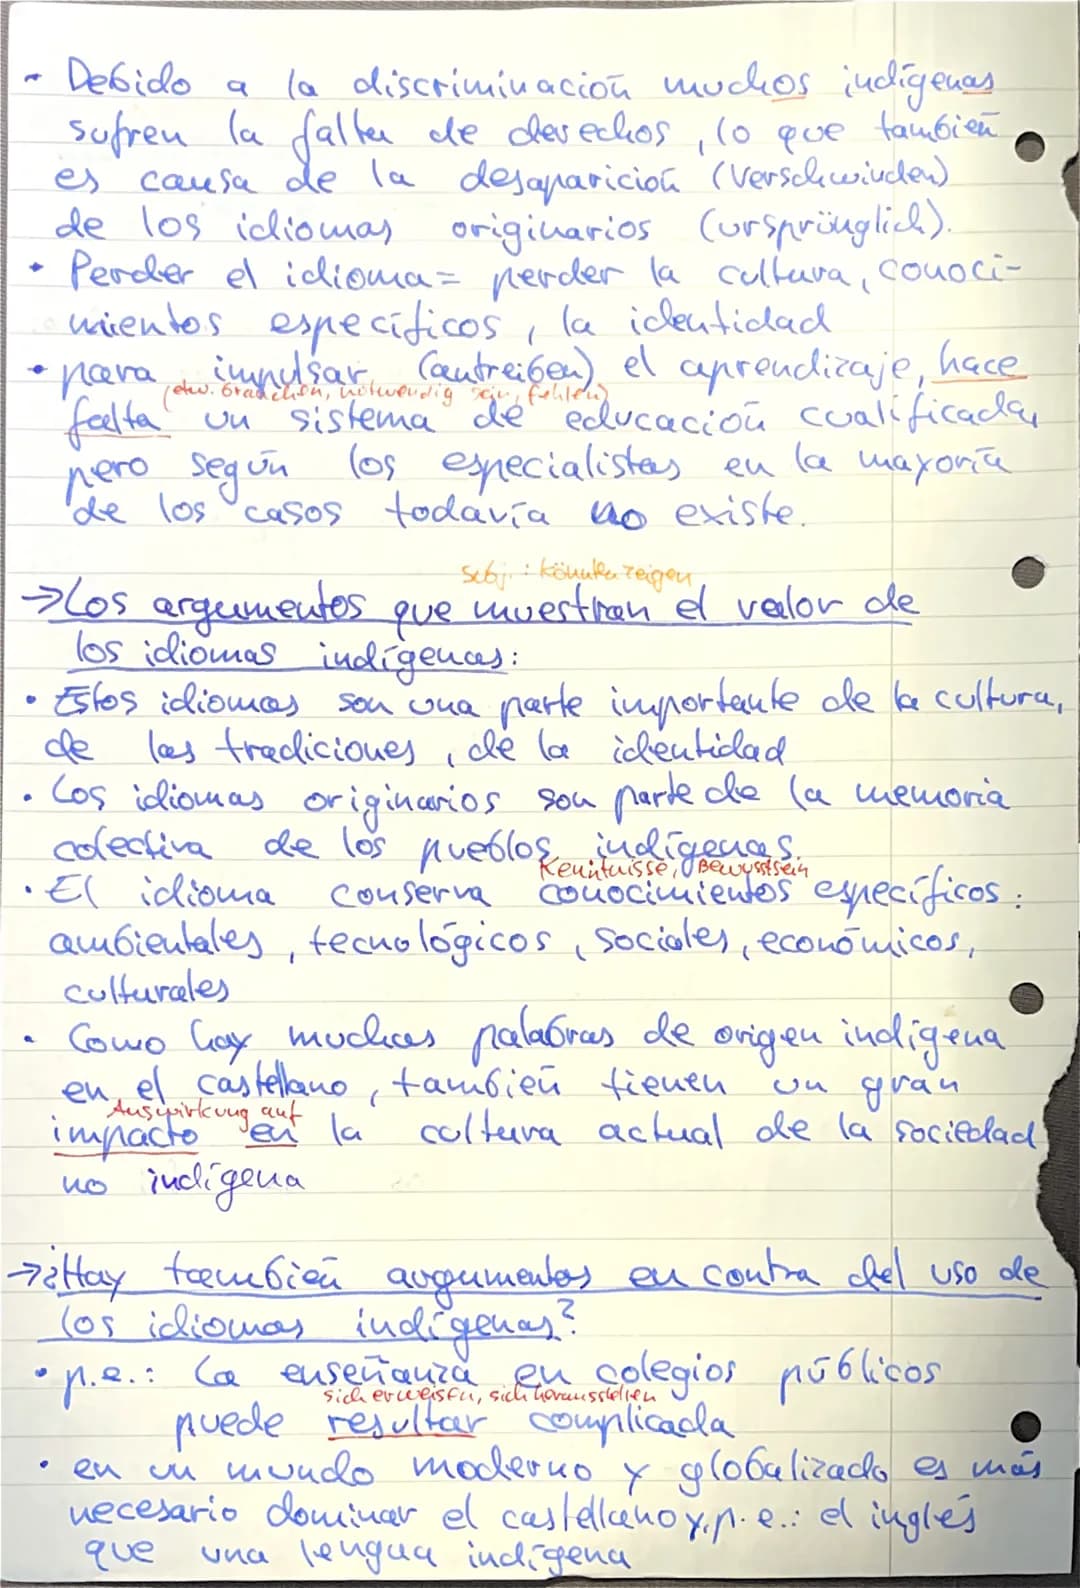 - Debido a la discriminación muchos indígenas
sufren la falta de derechos, lo que también
es causa de la desaparición (Verschwinden)
de los idiomas originarios (ursprünglich).
• Perder el idioma = perder la cultura, conoci-
mientos específicos, la identidad
• para impulsar (antreiben) el aprendizaje, hace
(etw. brauchen, notwendig sein, fehlen)
falta un sistema de educación cualificada,
pero según los especialistas en la mayoría
de los casos todavía no existe.
subj.: könnten zeigen
→ Los argumentos que muestran el valor de
los idiomas indígenas:
• Estos idiomas son una parte importante de la cultura,
de las tradiciones, de la identidad
• Los idiomas originarios son parte de la memoria
colectiva de los pueblos indígenas.
Kenntnisse, Bewusstsein
• El idioma conserva conocimientos específicos:
ambientales, tecnológicos, sociales, económicos,
culturales
• Como hay muchas palabras de origen indígena
en el castellano, también tienen un gran
Auswirkung auf
impacto en la cultura actual de la sociedad
no indígena
→ ¿Hay también argumentos en contra del uso de
los idiomas indígenas?
• p.e.: La enseñanza en colegios públicos
sich erweisen, sich herausstellen
puede resultar complicada
• en un mundo moderno y globalizado es más
necesario dominar el castellano y, p.e.: el inglés
que una lengua indígena